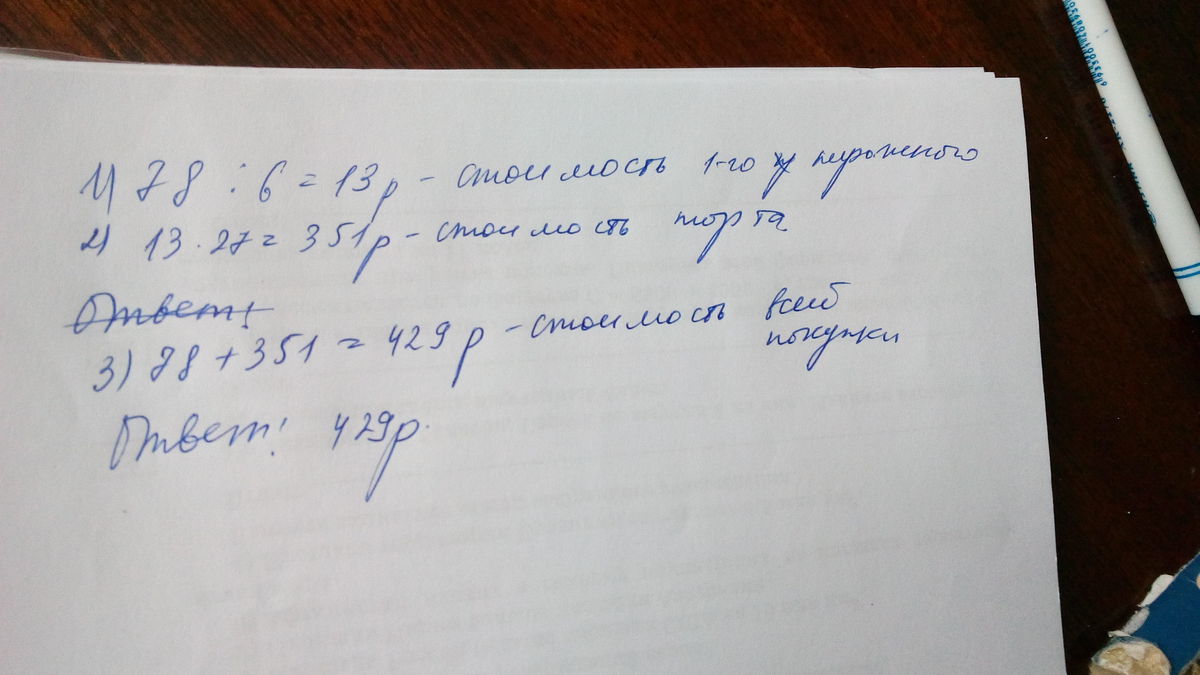 1) 78 : 6 = 13р - стоимость 1-го пирожного
2) 13 · 27 = 351р - стоимость торта
Ответ:
3) 78 + 351 = 429 р - стоимость всей
покупки
Ответ: 429р.